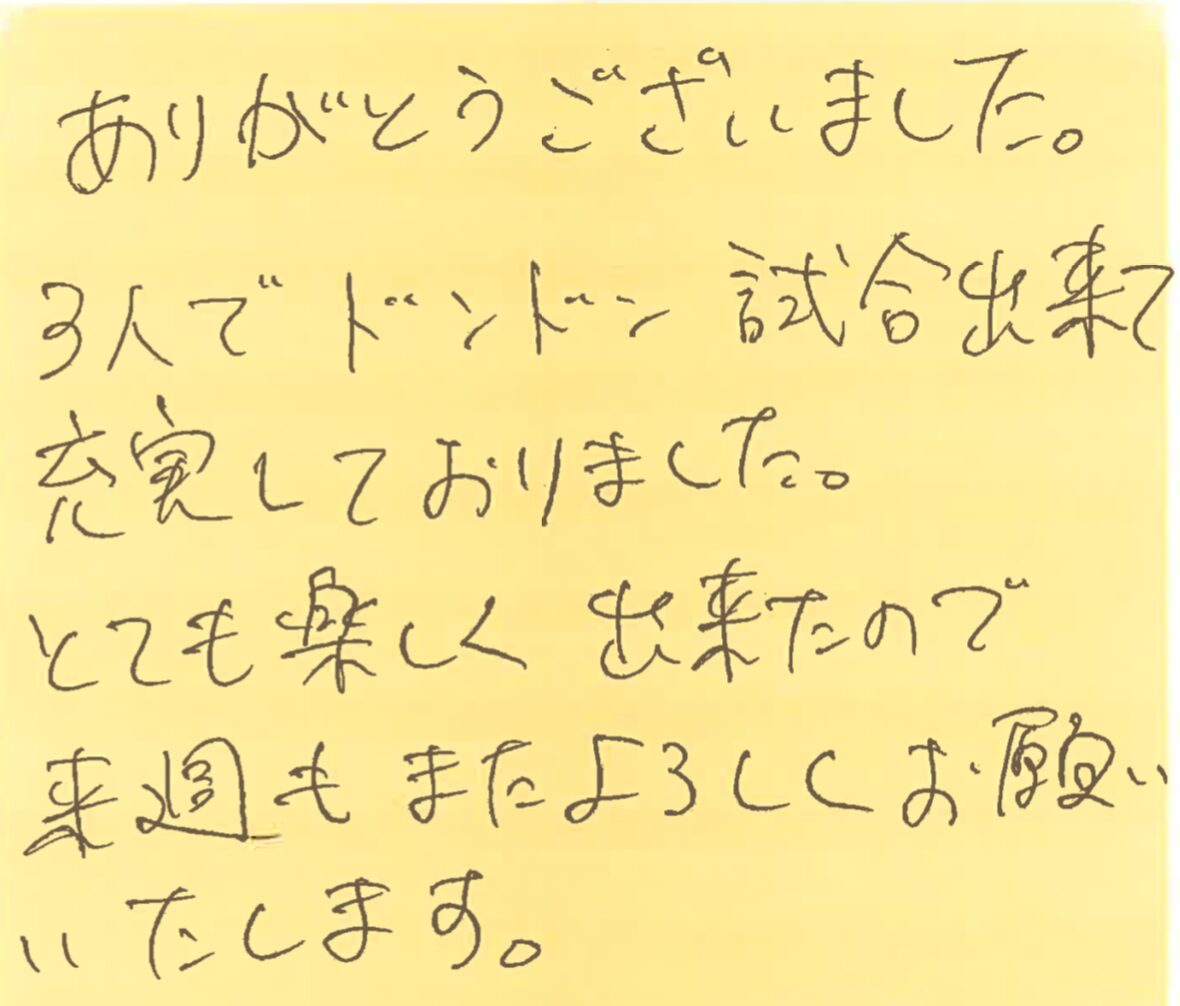 ありがとうございました。
3人でドンドン試合出来て
充実しておりました。
とても楽しく出来たので
来週もまたよろしくお願い
いたします。